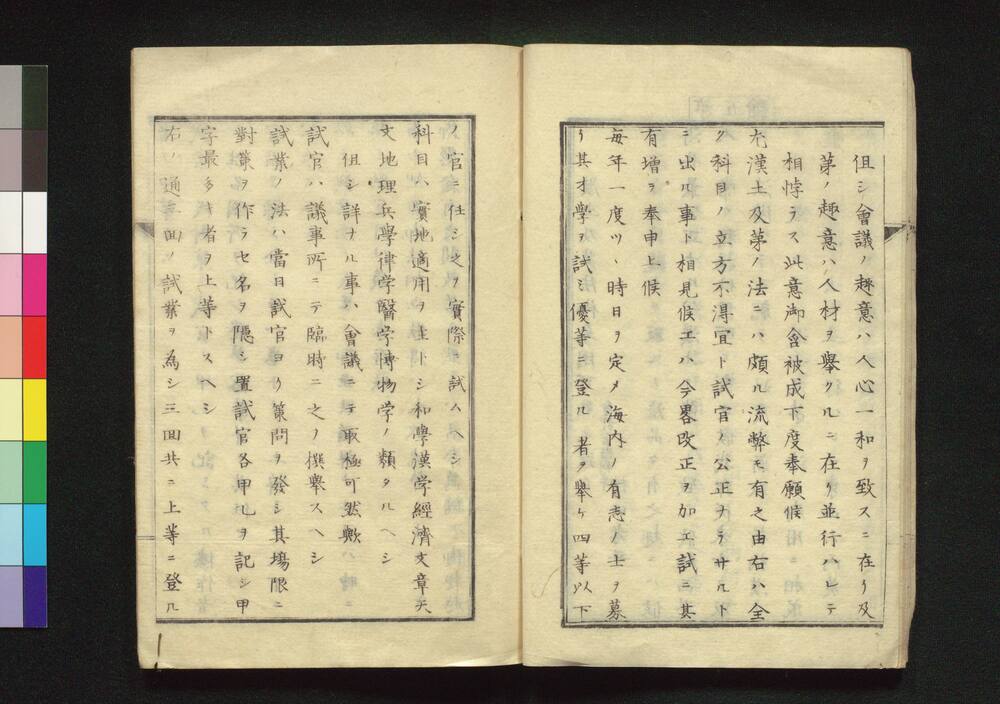 但シ會議ノ趣意ハ人心一和ヲ致スニ在リ及
第ノ趣意ハ人材ヲ擧クルニ在リ並行ハレテ
相悖ラス此意御含被成下度奉願候
尤漢土及第ノ法ニハ頗ル流弊モ有之由右ハ全
ク科目ノ立方不得宜ト試官ノ公正ナラサルト
ニ出ル事ト相見候エハ今畧改正ヲ加エ試ニ其
有増ヲ奉申上候
毎年一度ツヽ時日ヲ定メ海内ノ有志ノ士ヲ募
リ其才學ヲ試ミ優等ニ登ル者ヲ擧ケ四等以下
ノ官ニ任シ之ヲ實際ニ試ムヘシ
科目ハ實地適用ヲ主トシ和學漢学經濟文章天
文地理兵學律学醫学博物学ノ類タルヘシ
但シ詳ナル事ハ會議ニテ取極可然歟
試官ハ議事所ニテ臨時ニ之ヲ撰擧スヘシ
試業ノ法ハ當日試官ヨリ策問ヲ發シ其場限ニ
對策ヲ作ラセ名ヲ隱シ置試官各甲乙ヲ記シ甲
字最多キ者ヲ上等トスヘシ
右ノ通三回ノ試業ヲ為シ三回共ニ上等ニ登ル